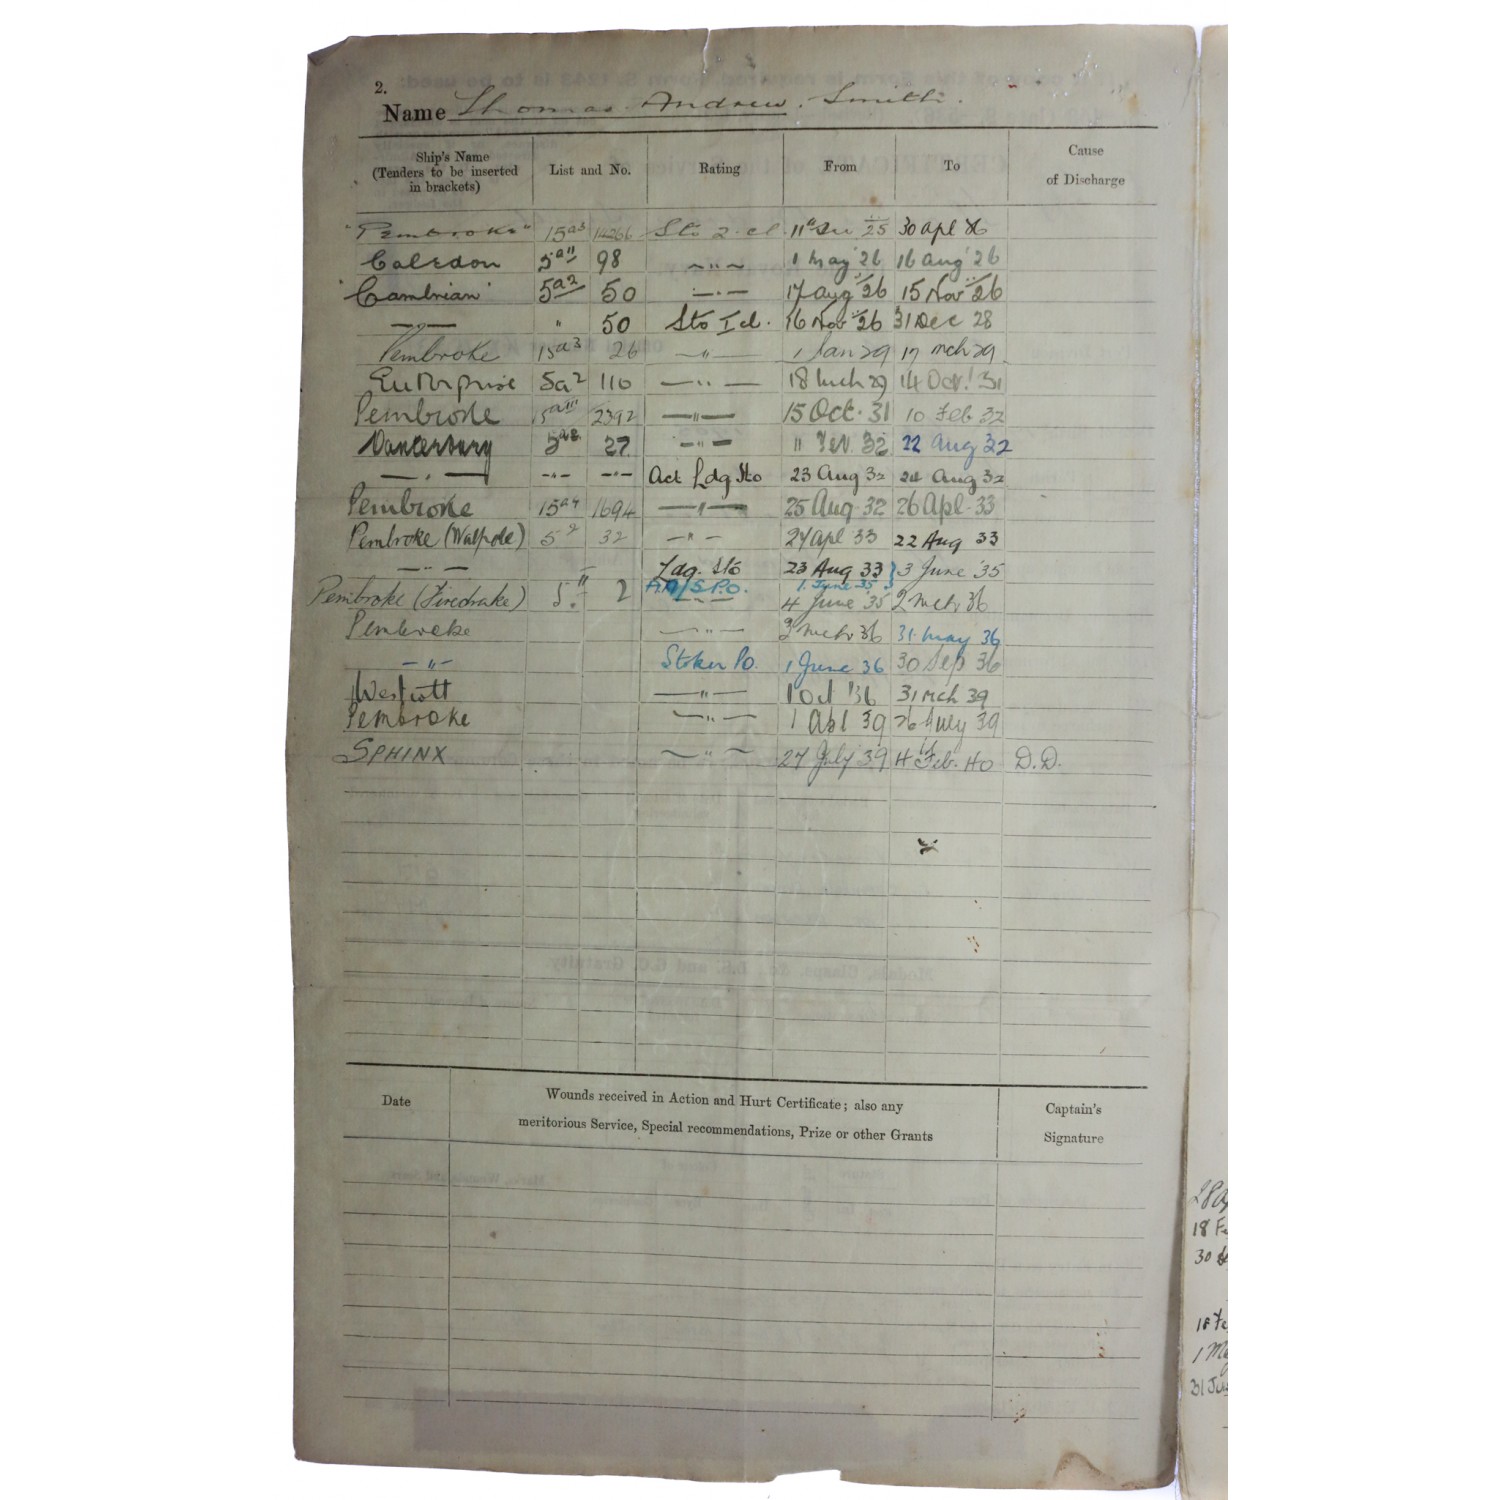 2.
Name Thomas Andrew Smith.
Ship's Name (Tenders to be inserted in brackets) List and No. Rating From To Cause of Discharge
"Pembroke" 15a3 14266 Sto 2 cl 25 30 Apl 26
Caledon 5a11 98 〃 1 May 26 16 Aug 26
"Cambrian" 5a2 50 〃 17 Aug 26 15 Nov 26
〃 〃 50 Sto I cl. 16 Nov 26 31 Dec 28
Pembroke 15a3 26 〃 1 Jan 29 17 Mch 29
Enterprise 5a2 110 〃 18 Mch 29 14 Oct. 31
Pembroke 15a11 2392 〃 15 Oct. 31 10 Feb 32
5a2 27 〃 11 Feb. 32 22 Aug 32
〃 〃 〃 Act Ldg Sto 23 Aug 32 24 Aug 32
Pembroke 15a4 1694 〃 25 Aug 32 26 Apl. 33
Pembroke (Walpole) 5 2 32 〃 27 Apl 33 22 Aug 33
〃 Ldg. Sto 23 Aug 33 } 3 June 35
A.A/S.P.O. 1. June 35
Pembroke (Firedrake) 5. 11 2 〃 4 June 35 2 Mch 36
Pembroke 〃 3 Mch 36 31. May 36
〃 Stoker P.O. 1 June 36 30 Sep 36
Westcott 〃 1 Oct 36 31 Mch 39
Pembroke 〃 1 Apl 39 26 July 39
SPHINX 〃 27 July 39 4th Feb. 40 D.D.
Date Wounds received in Action and Hurt Certificate; also any meritorious Service, Special recommendations, Prize or other Grants Captain's Signature
18 Fe
30
1 Ma
31 Ju